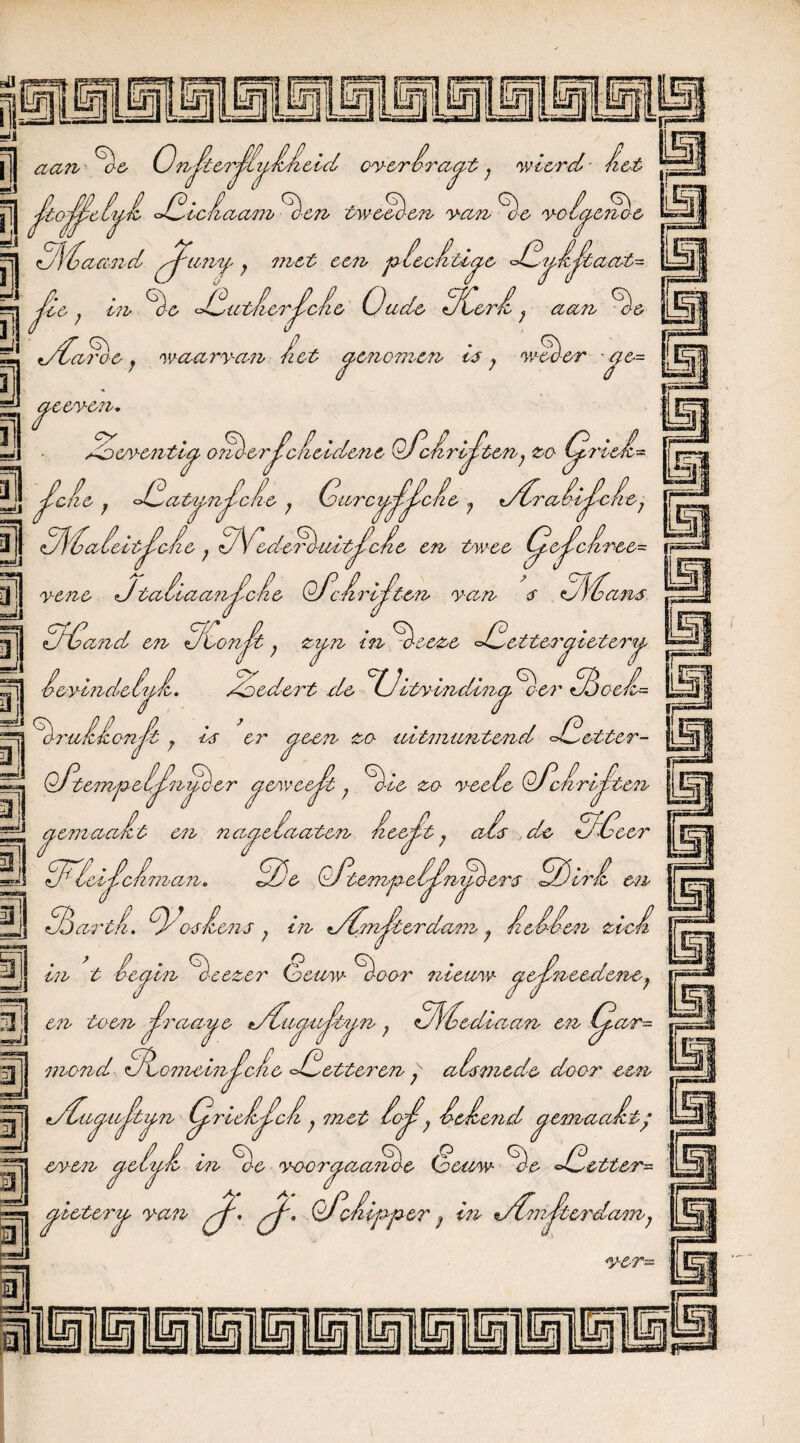 aan de Onsterflykheid overbragt, wierd het
stoffelyk Lichaam den tweeden van de volgende
Maand Juny, met een plechtige Lykstaat=
sie, in de Luthersche Oude Kerk, aan de
Aarde, waarvan het genomen is, weder ge=
geeven.
Zeventig onderscheidene Schriften, zo Griek=
sche, Latynsche, Curcyfsche, Arabische,
Maleitsche, Nederduitsche en twee Geschree=
vene Italiaansche Schriften van 's Mans
Hand en Konst, zyn in deeze Lettergietery
bevindelyk. Zedert de Uitvinding der Boek=
drukkonst, is 'er geen zo uitmuntend Letter-
Stempelsnyder geweest, die zo veele Schriften
gemaakt en nagelaaten heeft, als de Heer
Fleischman. De Stempelsnyders Dirk en
Barth. Voskens, in Amsterdam, hebben zich
in 't begin deezer Eeuw door nieuw gesneedene,
en toen fraaye Augustyn, Mediaan en Gar=
mond Romeinsche Letteren, alsmede door een
Augustyn Grieksch, met lof, bekend gemaakt;
even gelyk in de voorgaande Eeuw de Letter=
gietery van J. J. Schipper, in Amsterdam,
ver=